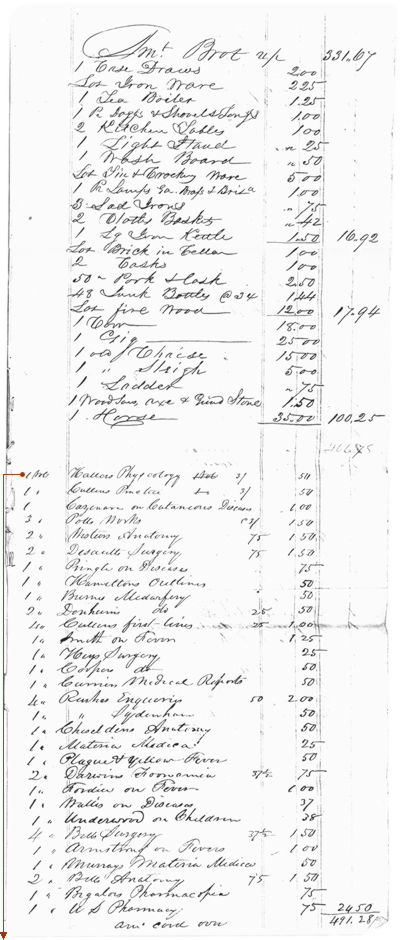 Amt Brot up 331.67
1 Case Draws 2.00
Lot Iron Ware 2 25
1 Tea Boiler 1.25
1 Pr Doggs & Shovel & Tongs 1.00
2 Kitchen Tables 1 00
1 Light Stand " 25
1 Wash Board " 50
Lot Tin & Crockry Ware 5 00
1 Pr Lamps 1 00
3 Sad Irons " 75
2 Cloths Baskts " 42
1 Lg Iron Kettle 1.50 16.92
Lot Brick in Cellar 1 00
2 Casks 1 00
50 " Pork & Cask 2.50
48 Junk Bottles @ 3 1.44
Lot fire Wood 12.00 17.94
1 Cow 18.00
1 Gig 25 00
1 old Chaise 15 00
1 " Sleigh 5 00
1 Ladder " 75
1 Wood Saw, axe & Grind Stone 1.50
1 Horse 35.00 100.25
1 Hallers Physeology 3/ 50
1 " Cullens Practice 3/ 50
1 Cazenave on Cutaneous Diseases 1.00
3 " Potts Works 3/ 1 50
2 " Wistars Anatomy 75 1 50
2 " Desault Surgery 75 1.50
1 " Pringle on Diseases 75
1 " Hamiltons Outlines 50
1 " Burns Medwifery 50
2 " Denhams do 25 50
4 " Cullens first-lines 25 1.00
1 " Smith on Fever 1.25
1 " Heys Surgery 25
1 " Coopers do 50
1 " Curries Medical Reports 50
4 " Rushes Enquirys 50 2 00
1 " " Sydenham 50
1 " Cheseldens Anatomy 50
1 " Materia Medica 25
1 " Plague & Yellow Fever 50
2 " Darwins Zoonamia 37½ 75
1 " Fordice on Fever 1 00
1 " Wallis on Diseases 37
1 " Underwood on Children 38
4 " Bells Surgery 37½ 1,50
1 " Armstrong on Fevers 1 00
1 " Murrays Materia Medica 50
2 " Bells Anatomy 75 1.50
1 " Bigalows Pharmacopia 75
1 " U S Pharmacy 75 24 50
amt card over 491.28